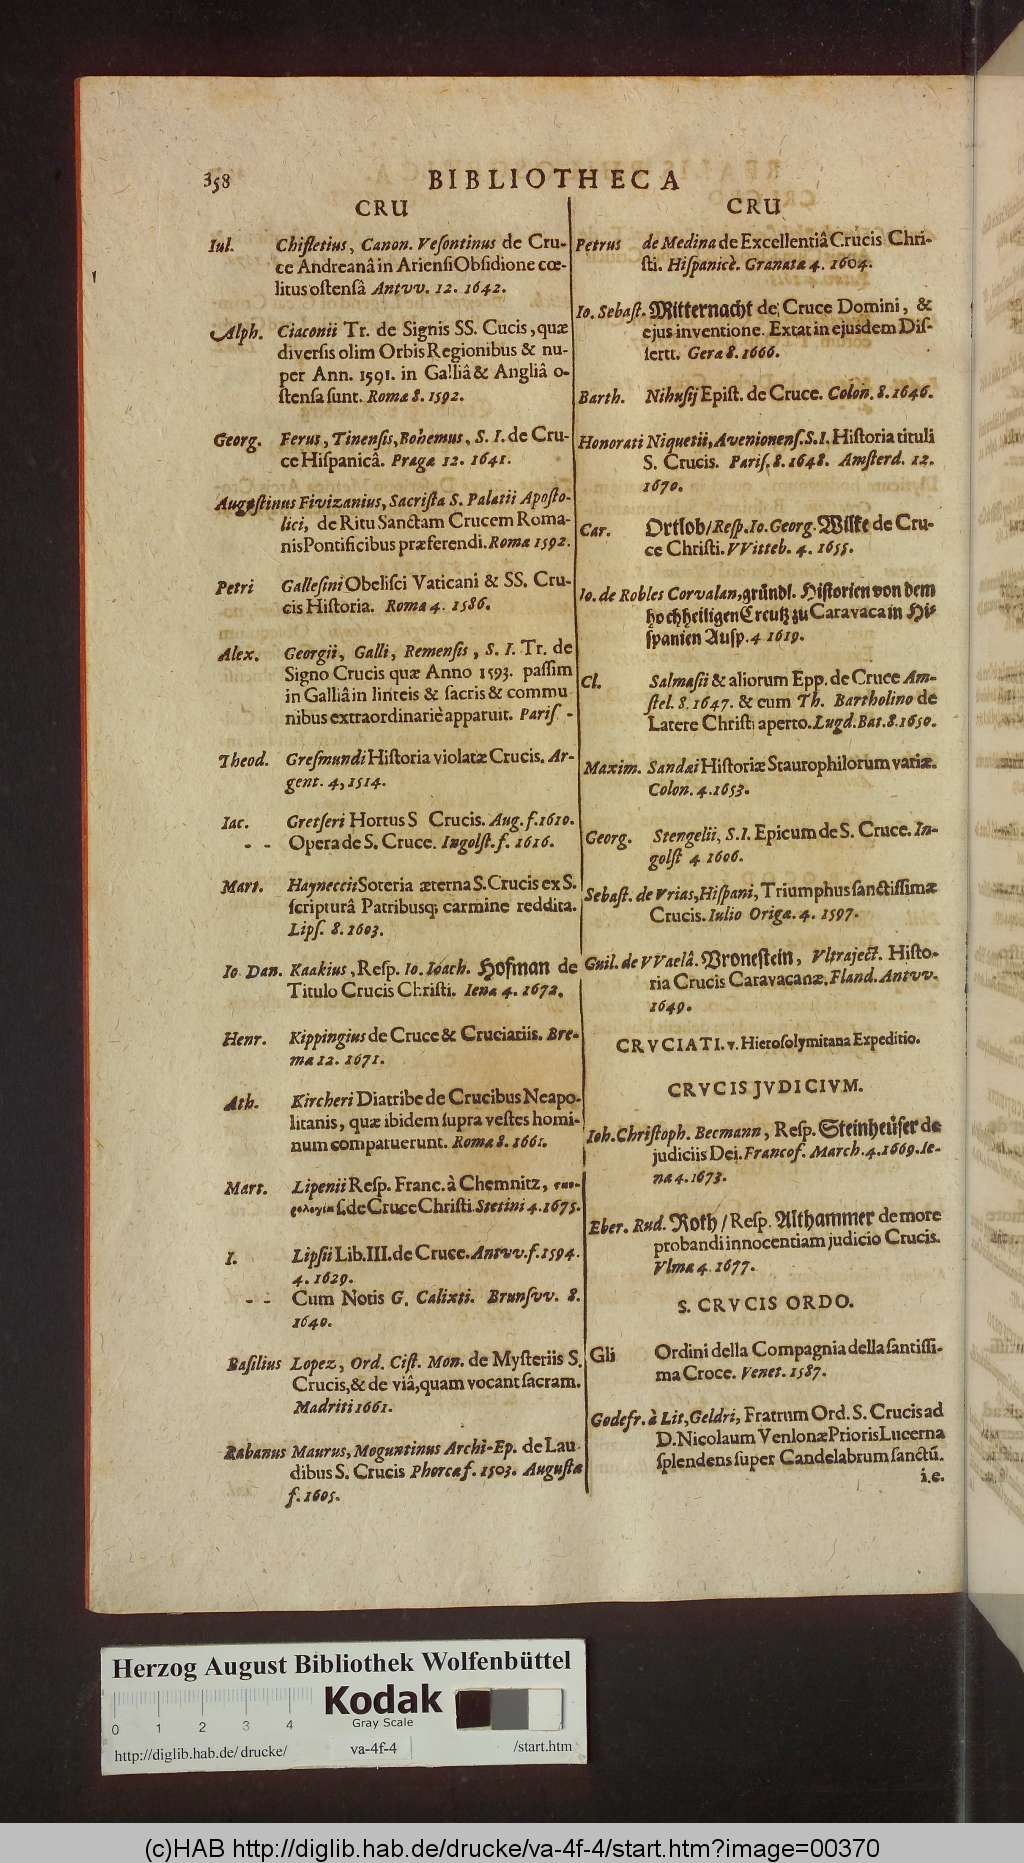 358
BIBLIOTHECA
CRU
Iul. Chifletius, Canon. Vesontinus de Cru-
ce Andreanâ in Ariensi Obsidione cœ-
litus ostensâ Antvv. 12. 1642.
Alph. Ciaconii Tr. de Signis SS. Cucis, quæ
diversis olim Orbis Regionibus & nu-
per Ann. 1591. in Galliâ & Angliâ o-
stensa sunt. Romæ 8. 1592.
Georg. Ferus, Tinensis, Bohemus, S. I. de Cru-
ce Hispanicâ. Pragæ 12. 1641.
Augustinus Fivizanius, Sacrista S. Palatii Aposto-
lici, de Ritu Sanctam Crucem Roma-
nis Pontificibus præferendi. Romæ 1592.
Petri Gallesini Obelisci Vaticani & SS. Cru-
cis Historia. Romæ 4. 1586.
Alex. Georgii, Galli, Remensis, S. I. Tr. de
Signo Crucis quæ Anno 1593. passim
in Galliâ in linteis & sacris & commu
nibus extraordinariè apparuit. Paris -
Theod. Gresmundi Historia violatæ Crucis. Ar-
gent. 4, 1514.
Iac. Gretseri Hortus S Crucis. Aug. f. 1610.
- - Opera de S. Cruce. Ingolst. f. 1616.
Mart. Hayneccii Soteria æterna S. Crucis ex S.
scripturâ Patribusq; carmine reddita.
Lips. 8. 1603.
Io Dan. Kaakius, Resp. Io. Ioach. Hofman de
Titulo Crucis Christi. Iena 4. 1672.
Henr. Kippingius de Cruce & Cruciariis. Bre-
mæ 12. 1671.
Ath. Kircheri Diatribe de Crucibus Neapo-
litanis, quæ ibidem supra vestes homi-
num comparuerunt. Romæ 8. 1661.
Mart. Lipenii Resp. Franc. à Chemnitz, σταυ-
ρολογία s. de Cruce Christi. Stetini 4. 1675.
I. Lipsii Lib. III. de Cruce. Antvv. f. 1594.
4. 1629.
- - Cum Notis G. Calixti. Brunsvv. 8.
1640.
Basilius Lopez, Ord. Cist. Mon. de Mysteriis S.
Crucis, & de viâ, quam vocant sacram.
Madriti 1661.
Rabanus Maurus, Moguntinus Archi-Ep. de Lau
dibus S. Crucis Phorcæ f. 1503. Augustæ
f. 1605.
CRU
Petrus de Medina de Excellentiâ Crucis Chri-
sti. Hispanicè. Granatæ 4. 1604.
Io. Sebast. Mitternacht de Cruce Domini, &
ejus inventione. Extat in ejusdem Dis-
sertt. Geræ 8. 1666.
Barth. Nihusij Epist. de Cruce. Colon. 8. 1646.
Honorati Niquetii, Avenionens. S. I. Historia tituli
S. Crucis. Paris. 8. 1648. Amsterd. 12.
1670.
Car. Ortlob / Resp. Io. Georg. Wilke de Cru-
ce Christi. VVitteb. 4. 1655.
Io. de Robles Corvalan, gründl. Historien von dem
hochheiligen Creutz zu Caravaca in Hi-
spanien Ausp. 4 1619.
Cl. Salmasii & aliorum Epp. de Cruce Am-
stel. 8. 1647. & cum Th. Bartholino de
Latere Christi aperto. Lugd. Bat. 8. 1650.
Maxim. Sandæi Historiæ Staurophilorum variæ.
Colon. 4. 1653.
Georg. Stengelii, S. I. Epicum de S. Cruce. In-
golst 4 1606.
Sebast. de Vrias, Hispani, Triumphus sanctissimæ
Crucis. Iulio Origæ. 4. 1597.
Guil. de VVaelâ. Vronestein, Vltraject. Histo-
ria Crucis Caravacanæ. Fland. Antvv.
1649.
CRVCIATI. v. Hierosolymitana Expeditio.
CRVCIS JVDICIVM.
Ioh. Christoph. Becmann, Resp. Steinheüser de
judiciis Dei. Francof. March. 4. 1669. Ie-
na 4. 1673.
Eber. Rud. Roth / Resp. Althammer de more
probandi innocentiam judicio Crucis.
Vlmæ 4. 1677.
S. CRVCIS ORDO.
Gli Ordini della Compagnia della santissi-
ma Croce. Venet. 1587.
Godefr. à Lit, Geldri, Fratrum Ord. S. Crucis ad
D. Nicolaum Venlonæ Prioris Lucerna
splendens super Candelabrum sanctū.
i.e.
Herzog August Bibliothek Wolfenbüttel
Kodak
Gray Scale
0 1 2 3 4
http://diglib.hab.de/ drucke/ va-4f-4 /start.htm
(c)HAB http://diglib.hab.de/drucke/va-4f-4/start.htm?image=00370